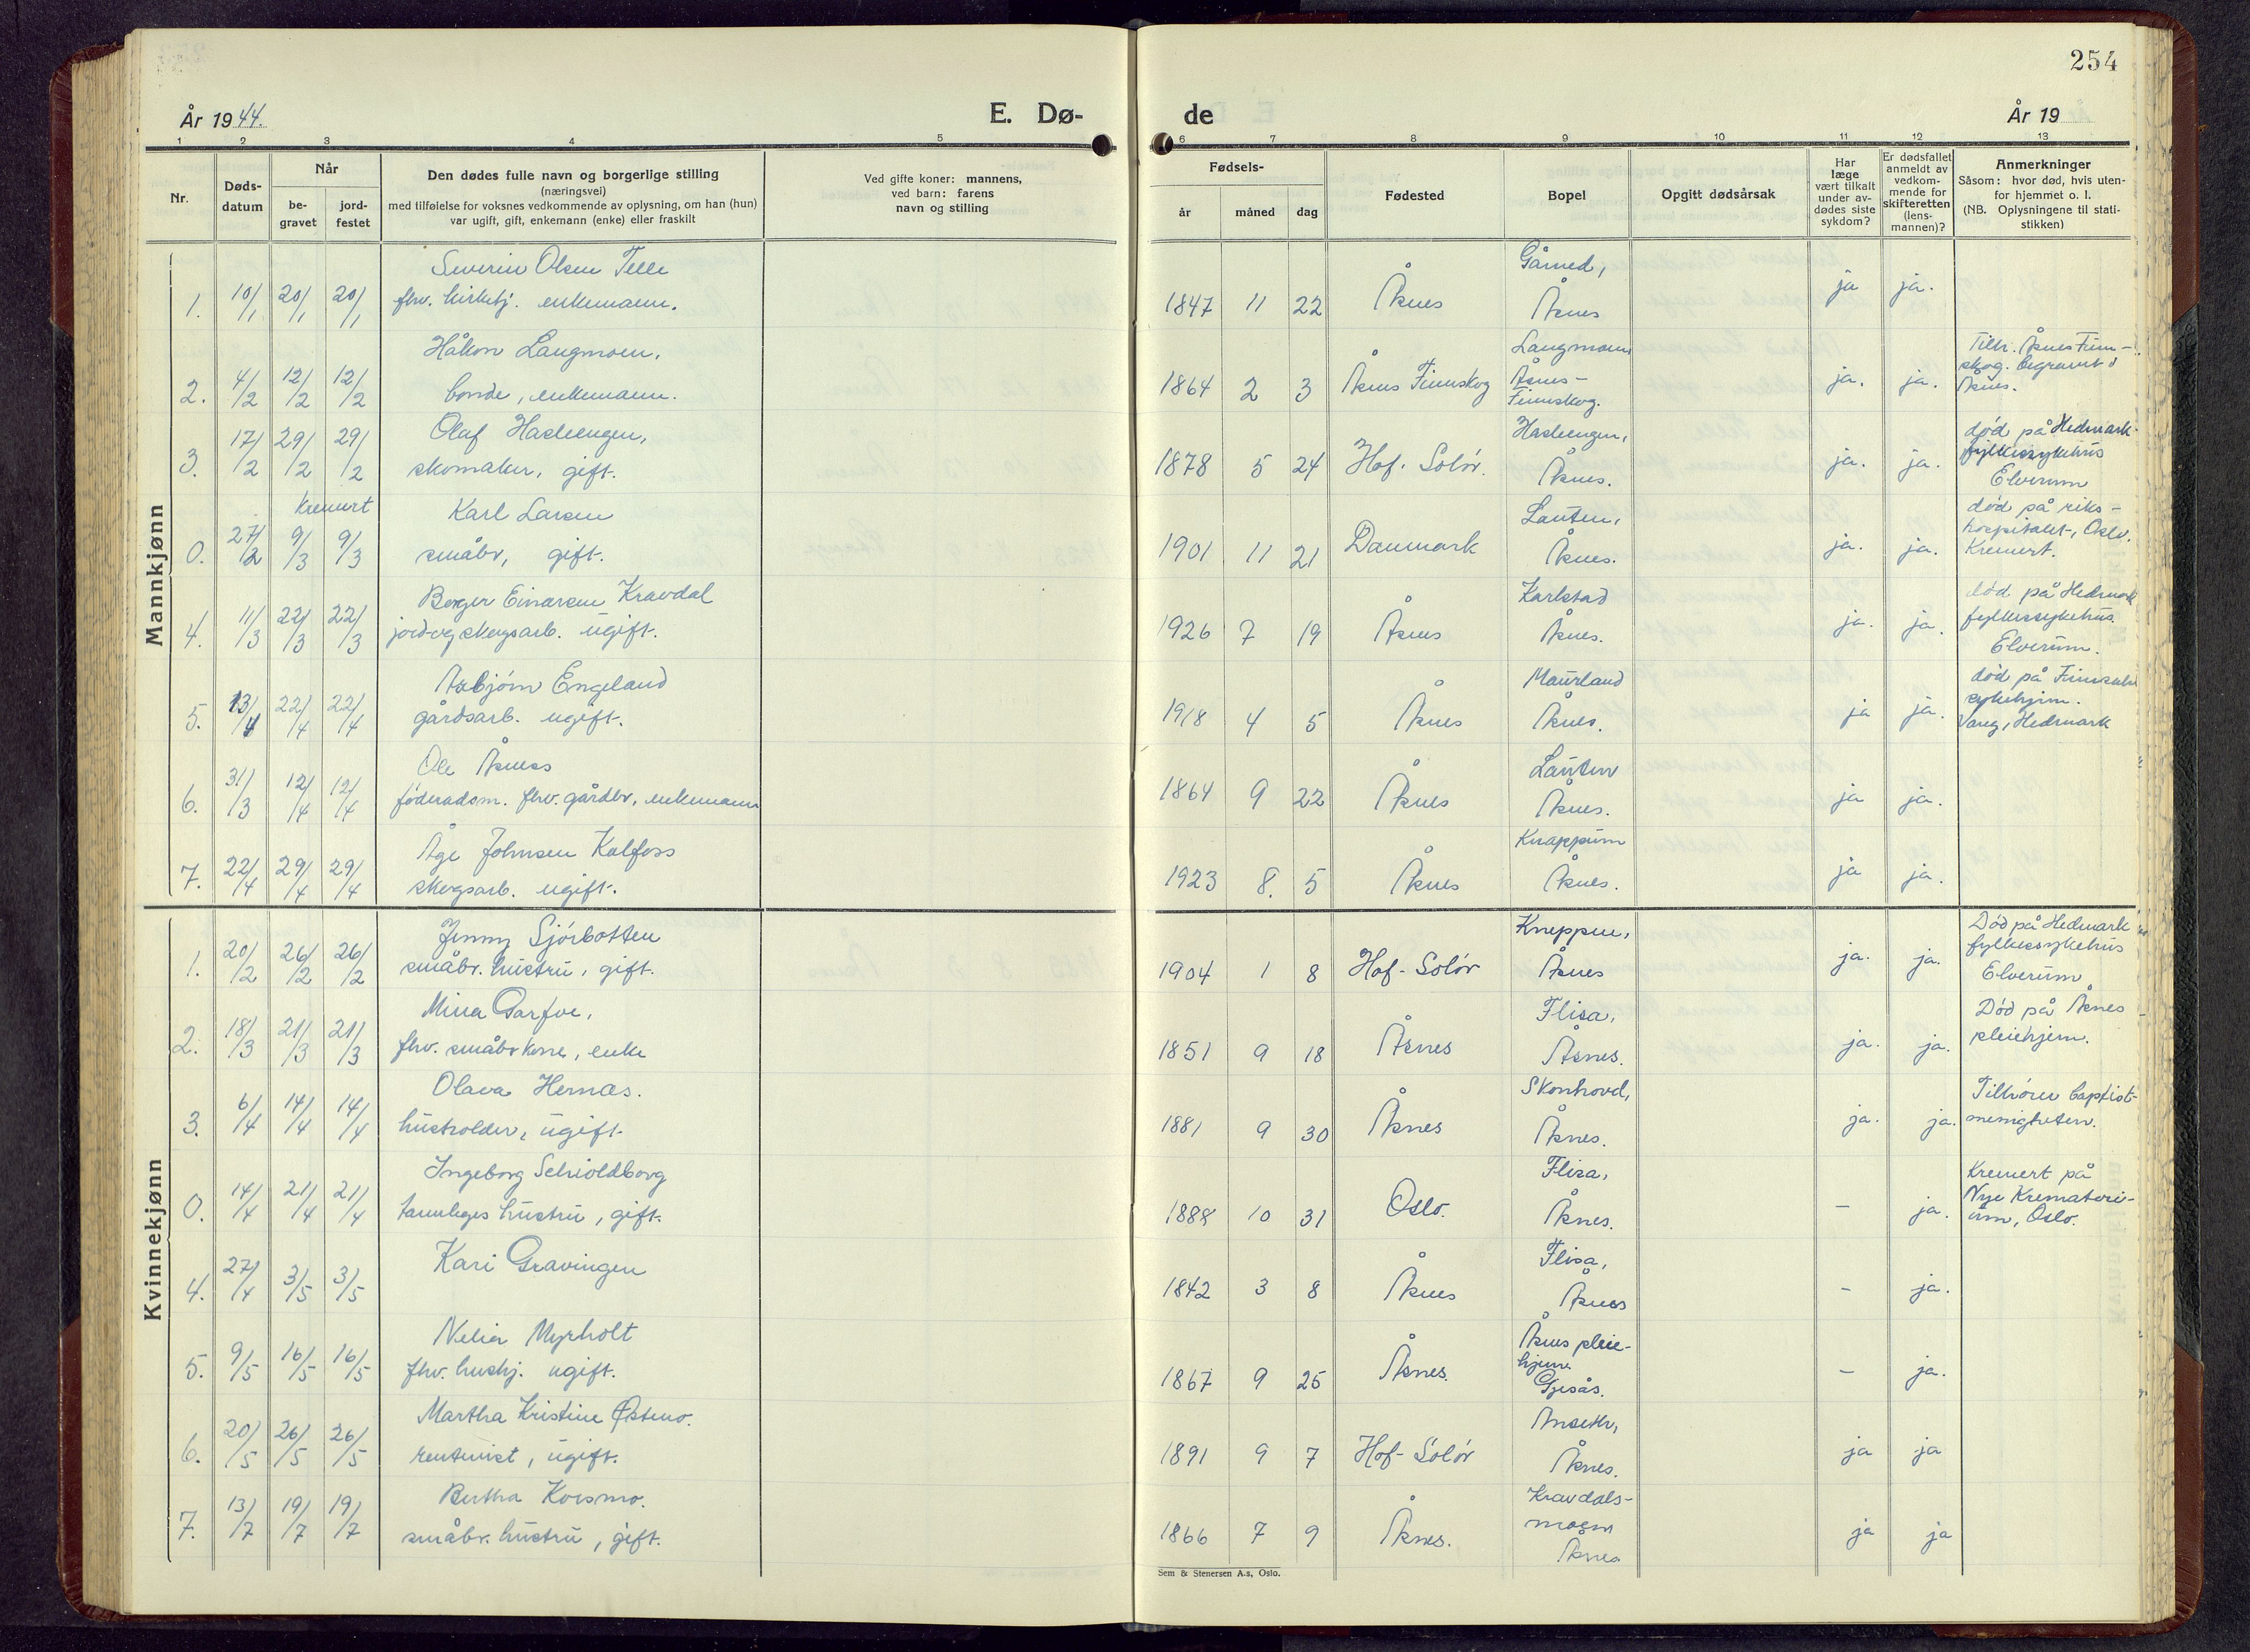 254
År 1944.
E. Dø-
de
År 19
1 2 3 4 5
6 7 8 9 10 11 12 13
Nr.
Døds-
datum
Når
be-
gravet
jord-
festet
Den dødes fulle navn og borgerlige stilling
(næringsvei)
med tilføielse for voksnes vedkommende av oplysning, om han (hun)
var ugift, gift, enkemann (enke) eller fraskilt
Ved gifte koner: mannens,
ved barn: farens
navn og stilling
Fødsels-
år
måned
dag
Fødested
Bopel
Opgitt dødsårsak
Har
læge
vært tilkalt
under av-
dødes siste
sykdom?
Er dødsfallet
anmeldt av
vedkom-
mende for
skifteretten
(lens-
mannen)?
Anmerkninger
Såsom: hvor død, hvis uten-
for hjemmet o. l.
(NB. Oplysningene til stati-
stikken)
Mannkjønn
Severin Olsen Telle
1. 10/1 20/1 20/1 fhv. kirketj. enkemann.
1847 11 22 Åsnes
Gårned,
Åsnes
ja ja.
Håkon Langmoen,
2. 4/2 12/2 12/2 bonde, enkemann.
1864 2 3 Åsnes Finnskog
Langmoen
Åsnes-
Finnskog.
ja. ja.
Tilh. Åsnes Finn-
skog. begravet i
Åsnes.
Olaf Hasleengen,
3. 17/2 29/2 29/2 skomaker, gift.
1878 5 24 Hof. Solør.
Hasleengen,
Åsnes.
ja. ja.
død på Hedmark
fylkessykehus
Elverum
Kremert
Karl Larsen
0. 27/2 9/3 9/3 småbr, gift.
1901 11 21 Danmark
Lauten,
Åsnes.
ja. ja.
død på riks-
hospitalet, Oslo.
Kremert.
Borger Einarsen Kravdal
4. 11/3 22/3 22/3 jord-og skogsarb. ugift.
1926 7 19 Åsnes
Karlstad
Åsnes.
ja. ja.
død på Hedmark
fylkessykehus
Elverum.
Asbjørn Engeland
5. 13/4 22/4 22/4 gårdsarb. ugift.
1918 4 5 Åsnes
Maurland
Åsnes.
ja ja.
død på
sykehjem.
Vang, Hedmark
Ole Åsnes
6. 31/3 12/4 12/4 föderadsm. fhv. gårdbr, enkemann
1864 9 22 Åsnes
Lauten
Åsnes.
ja ja.
Åge Johnsen Kalfoss
7. 22/4 29/4 29/4 skogsarb. ugift.
1923 8. 5 Åsnes
Knappum
Åsnes.
ja ja.
Kvinnekjønn
Jenny Sjørbotten
1. 20/2 26/2 26/2 småbr. hustru, gift.
1904 1 8 Hof-Solør
Kneppen,
Åsnes
ja. ja.
Død på Hedmark
fylkessykehus
Elverum
Mina Garfoe,
2. 18/3 21/3 21/3 fhv. småbrkone, enke
1851 9 18 Åsnes
Flisa,
Åsnes.
ja. ja.
Død på Åsnes
pleiehjem.
Olava Hernæs.
3. 6/4 14/4 14/4 husholder, ugift
1881 9 30 Åsnes
Skonhovd,
Åsnes.
ja. ja.
Tilhører baptist-
menigheten.
Ingeborg Schioldborg
0. 14/4 21/4 21/4 tannleges hustru, gift.
1888 10 31 Oslo.
Flisa,
Åsnes.
- ja.
Kremert på
Nye Krematori-
um, Oslo.
Kari Gravingen
4. 27/4 3/5 3/5
1842 3 8 Åsnes
Flisa,
Åsnes
- ja.
Nelia Myrholt
5. 9/5 16/5 16/5 fhv. hushj. ugift.
1867 9 25 Åsnes.
Åsnes pleie-
hjem
Gjesås.
- ja.
Martha Kristine Østmo.
6. 20/5 26/5 26/5 rentenist, ugift.
1891 9 7 Hof-Solør
Anseth,
Åsnes.
ja ja
Bertha Korsmo.
7. 13/7 19/7 19/7 småbr. hustru, gift.
1866 7 9 Åsnes.
Kravdals-
moen
Åsnes
ja ja
Sem & Stenersen A.s, Oslo.